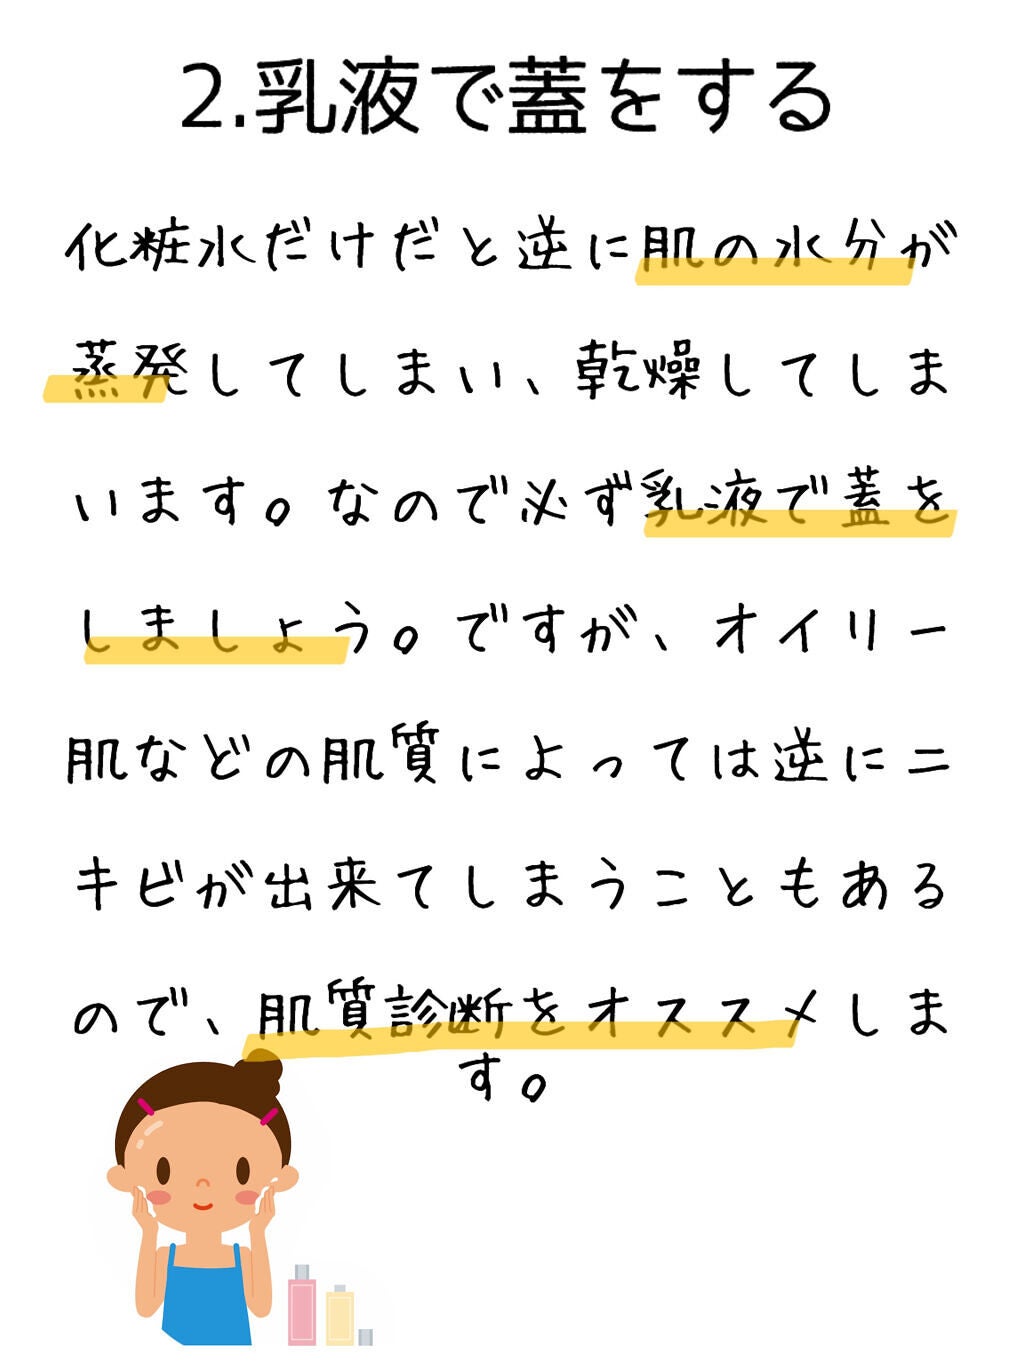 2.乳液で蓋をする
化粧水だけだと逆に肌の水分が
蒸発してしまい、乾燥してしま
います。なので必ず乳液で蓋を
しましょう。ですが、オイリー
肌などの肌質によっては逆にニ
キビが出来てしまうこともある
ので、肌質診断をオススメしま
す。